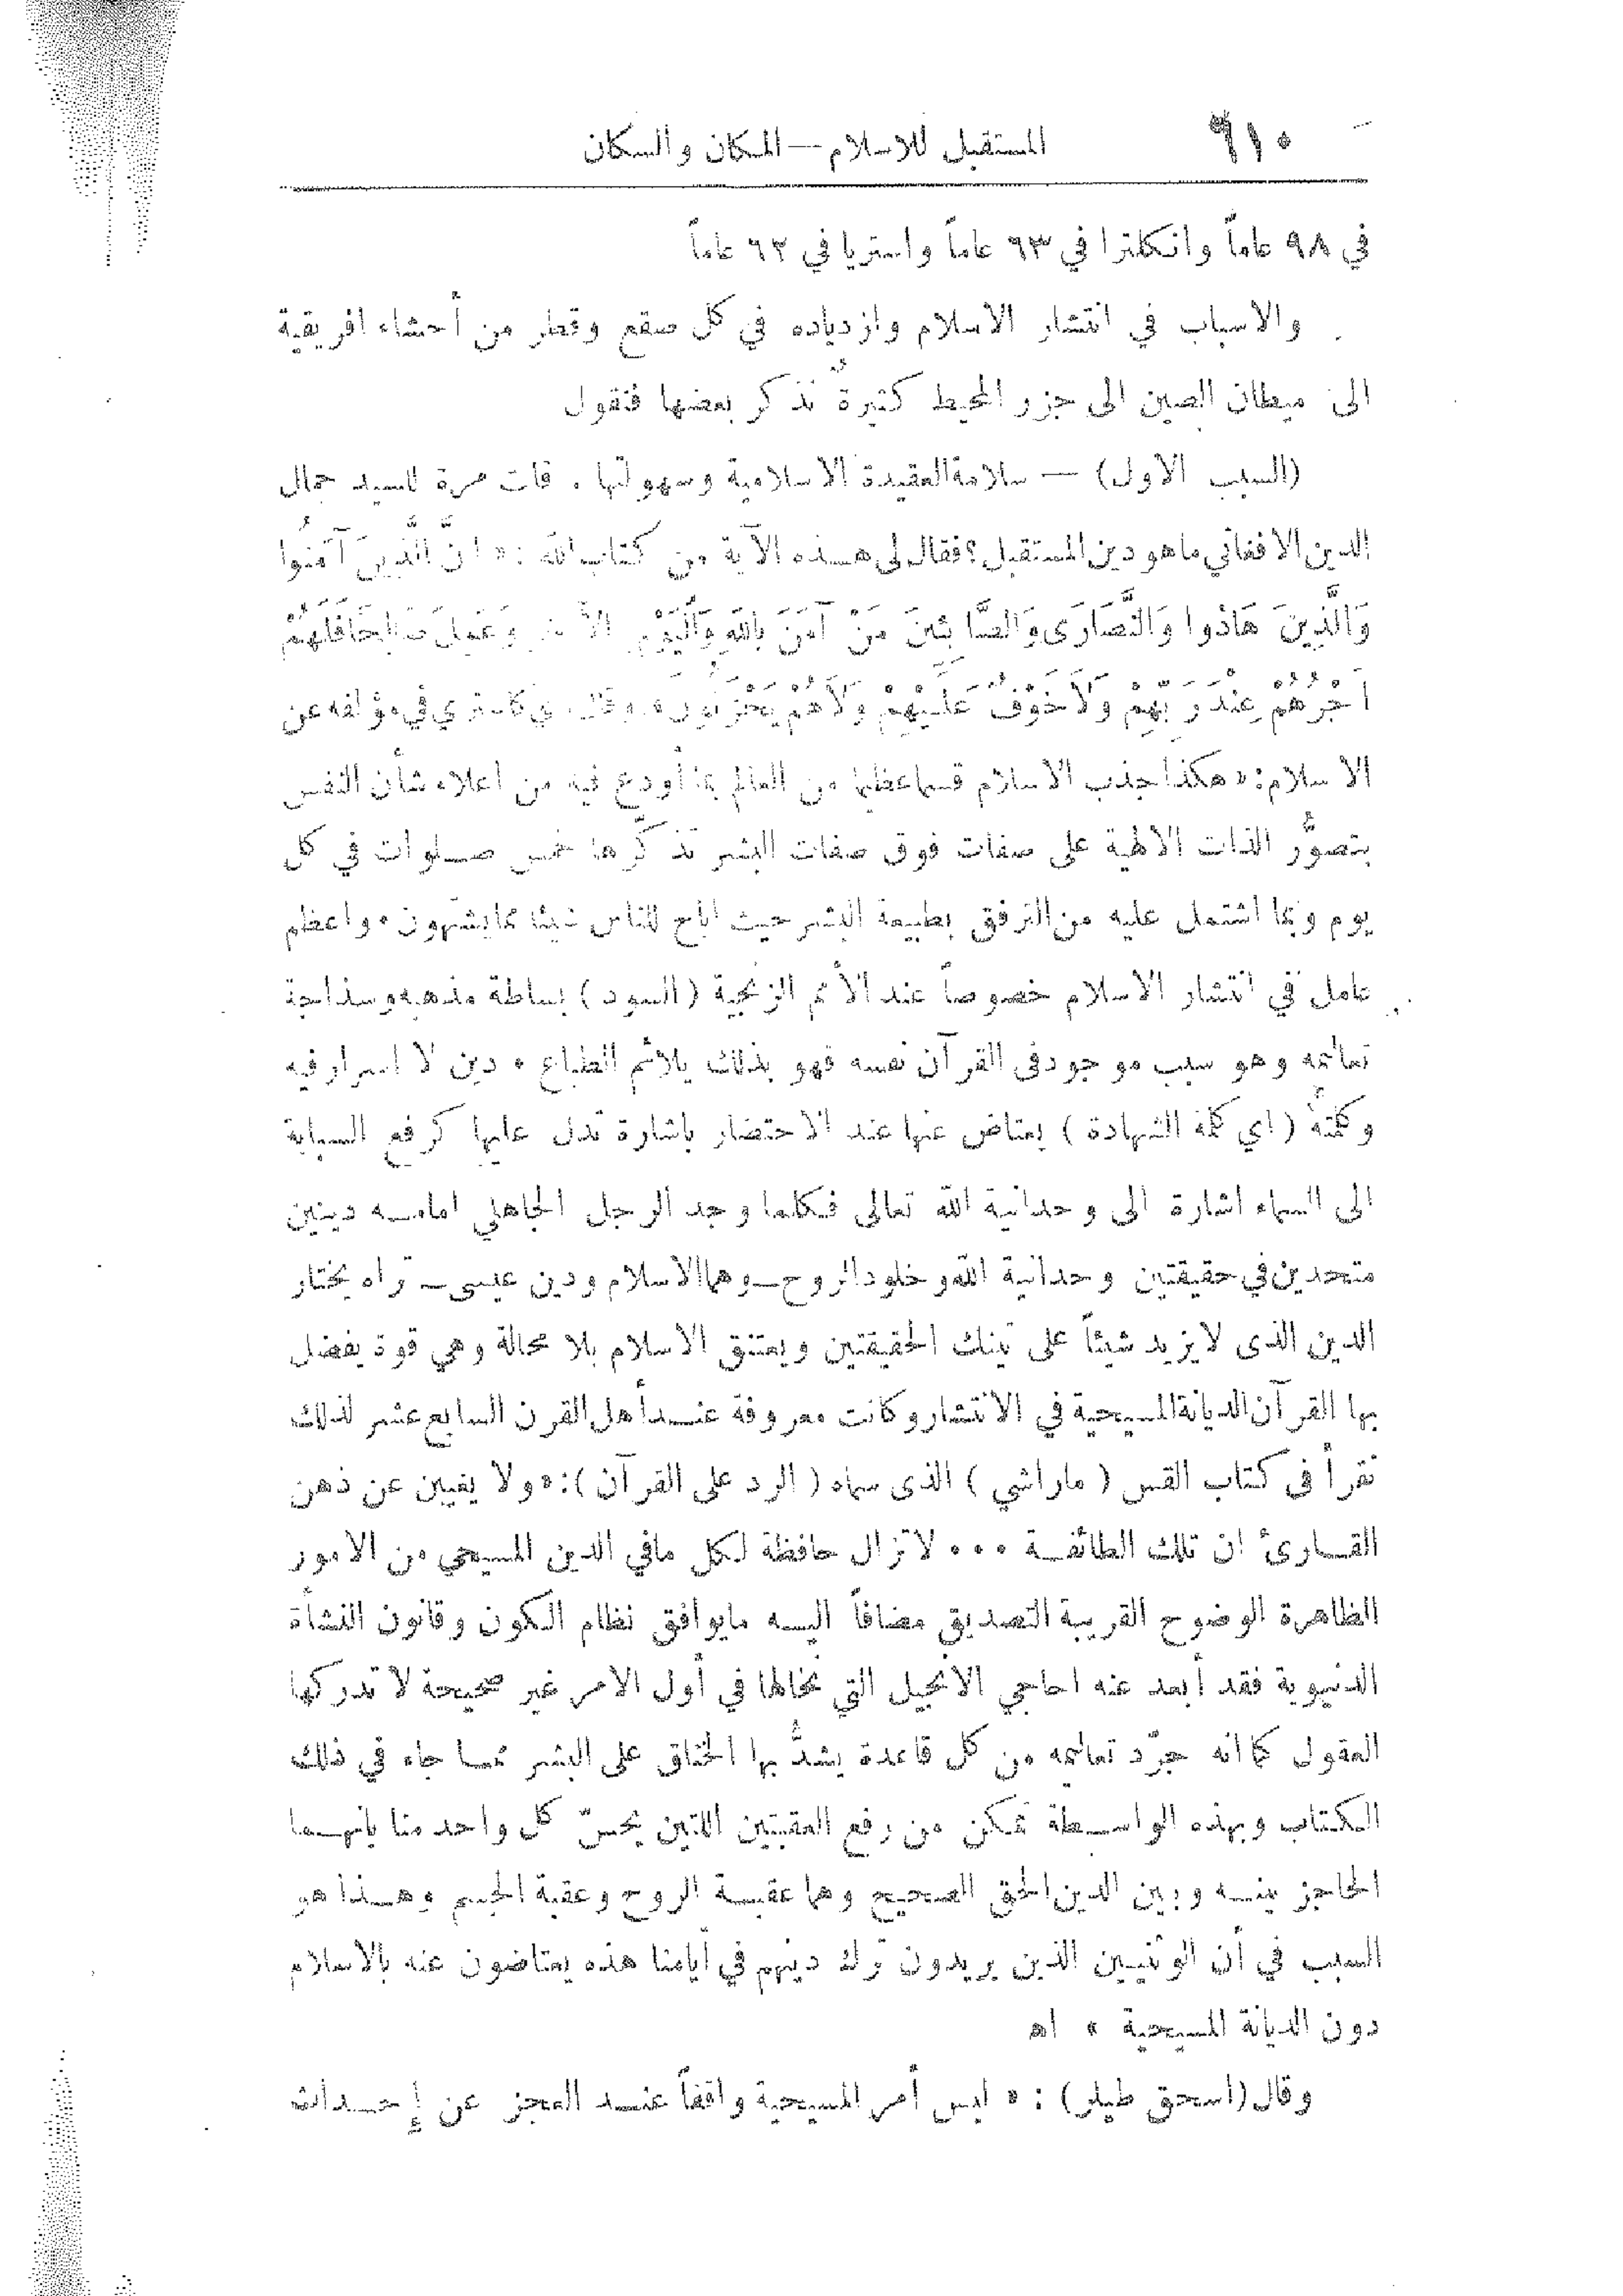 ٩١٠ المستقبل للاسلام — المكان والسكان
في ٩٨ عاماً وانكلترا في ٦٣ عاماً واستريا في ٦٢ عاماً
والاسباب في انتشار الاسلام وازدياده في كل صقع وقطر من أحشاء افريقية
الى ميطان الصين الى جزر المحيط كثيرة نذكر بعضها فنقول
(السبب الاول) — سلامة العقيدة الاسلامية وسهولتها . قلت مرة للسيد جمال
الدين الافغاني ما هو دين المستقبل؟ فقال لى هذه الآية من كتاب الله : « انَّ الَّذِينَ آمَنُوا
وَالَّذِينَ هَادُوا وَالنَّصَارَى وَالصَّابِئِينَ مَنْ آمَنَ بِاللهِ وَالْيَوْمِ الآخِرِ وَعَمِلَ صَالِحًا فَلَهُمْ
أَجْرُهُمْ عِنْدَ رَبِّهِمْ وَلاَ خَوْفٌ عَلَيْهِمْ وَلاَ هُمْ يَحْزَنُونَ » وقال دي كاستري في مؤلفه عن
الاسلام: « هكذا جذب الاسلام قسما عظيما من العالم بما أودع فيه من اعلاء شأن النفس
بتصوُّر الذات الالهية على صفات فوق صفات البشر تذكّرها خمس صلوات في كل
يوم وبما اشتمل عليه من الترفق بطبيعة البشر حيث اباح للناس شيئا مما يشتهون . واعظم
عامل في انتشار الاسلام خصوصاً عند الأمم الزنجية (السود) بساطة مذهبه وسذاجة
تعاليمه وهو سبب موجود فى القرآن نفسه فهو بذلك يلائم الطباع . دين لا اسرار فيه
وكلمته (اي كلمة الشهادة) يعتاض عنها عند الاحتضار باشارة تدل عليها كرفع السبابة
الى السماء اشارة الى وحدانية الله تعالى فكلما وجد الرجل الجاهلي امامه دينين
متحدين في حقيقتين وحدانية الله وخلود الروح — وهما الاسلام ودين عيسى — تراه يختار
الدين الذى لا يزيد شيئاً على تينك الحقيقتين ويعتنق الاسلام بلا محالة وهي قوة يفضل
بها القرآن الديانة المسيحية في الانتشار وكانت معروفة عند أهل القرن السابع عشر لذلك
نقرأ فى كتاب القس (ماراشي) الذى سماه (الرد على القرآن): « ولا يغيبن عن ذهن
القارئ ان تلك الطائفة ٠٠٠ لا تزال حافظة لكل ما في الدين المسيحي من الامور
الظاهرة الوضوح القريبة التصديق مضافاً اليه ما يوافق نظام الكون وقانون النشأة
الدنيوية فقد أبعد عنه احاجي الانجيل التي نخالها في أول الامر غير صحيحة لا تدركها
العقول كما انه جرّد تعاليمه من كل قاعدة يشدُّ بها الخناق على البشر مما جاء في ذلك
الكتاب وبهذه الواسطة تمكن من رفع العقبتين اللتين يحسّ كل واحد منا بانهما
الحاجز بينه وبين الدين الحق الصحيح وهما عقبة الروح وعقبة الجسم . وهذا هو
السبب في أن الوثنيين الذين يريدون ترك دينهم في أيامنا هذه يعتاضون عنه بالاسلام
دون الديانة المسيحية » اه
وقال (اسحق طيلر) : « ليس أمر المسيحية واقفاً عند العجز عن إحداث